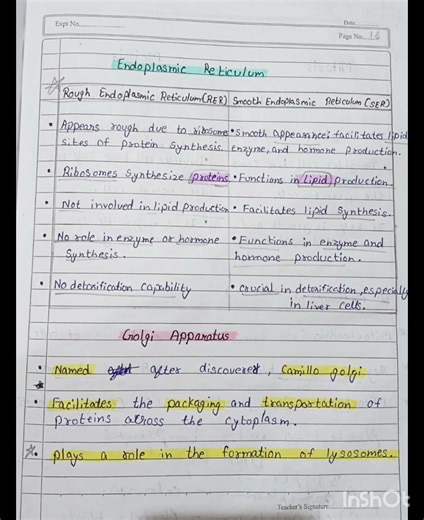 Expt No.
Date
Page No. 16
Endoplasmic Reticulum
Rough Endoplasmic Reticulum (RER)
Smooth Endoplasmic Reticulum (SER)
• Appears rough due to ribosome
sites of protein synthesis
• Smooth appearance: facilitates lipid
enzyme, and hormone production.
• Ribosomes synthesize proteins
• Functions in Lipid production
• Not involved in lipid production
• Facilitates lipid synthesis.
• No role in enzyme or hormone
synthesis.
• Functions in enzyme and
hormone production.
• No detoxification capability
• crucial in detoxification, especially
in liver cells.
Golgi Apparatus
• Named after discoverer, Camillo golgi
• Facilitates the packaging and transportation of
proteins across the cytoplasm.
• plays a role in the formation of lysosomes.
Teacher's Signature
InShot